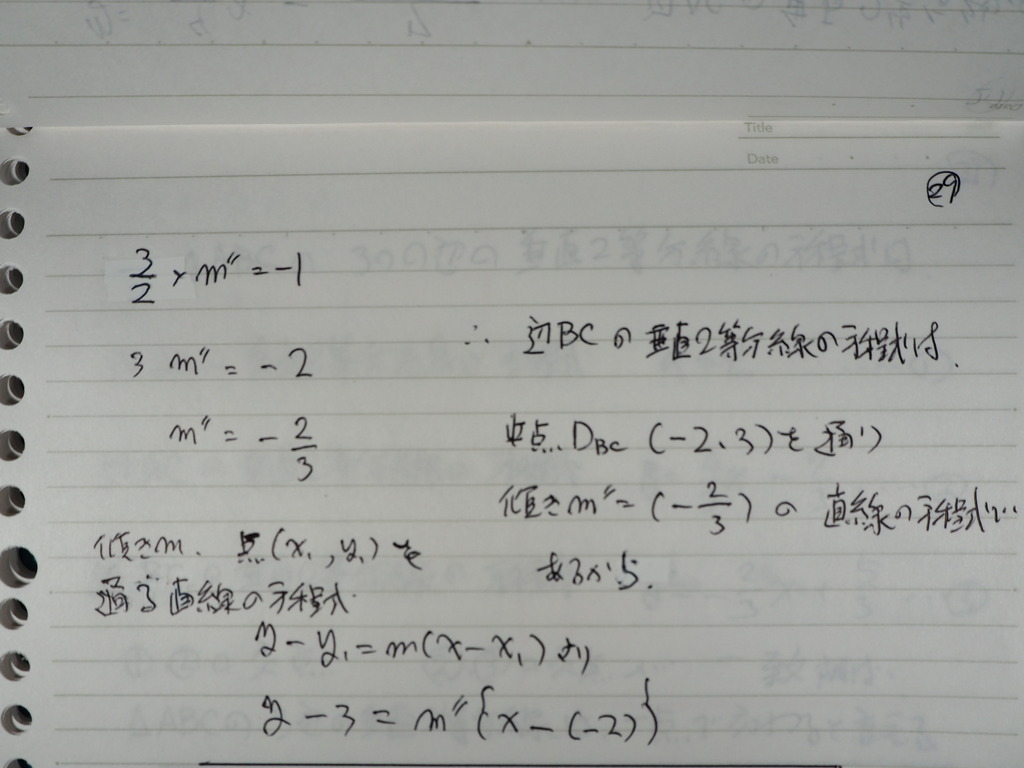 Title
Date
㉙
3/2 × m″ = -1
3 m″ = -2
m″ = -2/3
∴ 辺BCの垂直2等分線の方程式は、
中点、D_BC (-2、3)を通り
傾きm″=(-2/3)の直線の方程式で
あるから、
傾きm、点(x₁, y₁)を
通る直線の方程式
y - y₁ = m(x - x₁)より
y - 3 = m″{x - (-2)}